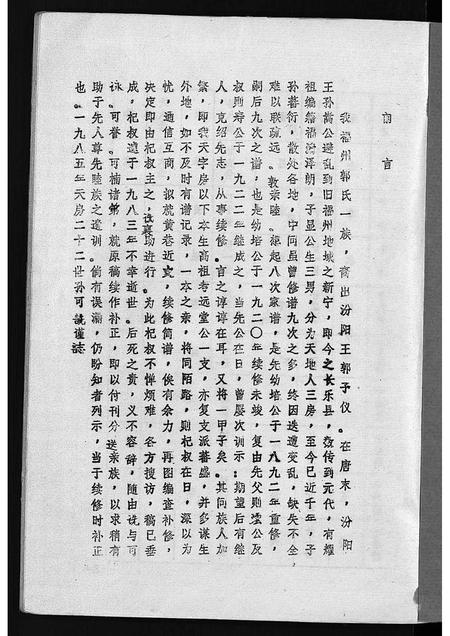 前言
我福州郭氏一族，裔出汾阳王郭子仪。在唐末，汾阳
王孙嵩公避乱到旧福州地域之新宁，即今之长乐县，数传到元代，有耀
祖编籍福清泽朗，子显公生三男，分为天地人三房，至今已近千年，子
孙蕃衍，散处各地，中间虽曾修谱九次之多，终因迭遭变乱，缺失不全
难以联疏远。敦亲睦。缅起八次家谱，是先幼培公于一八九二年重修，
嗣后九次之谱，也是幼培公于一九二〇年续修未竣，复由先父则壎公及
叔则寿公于一九二二年继成之，当先公在日，曾屡次训示：期望后有继
人，克绍先志，从事续修。言之谆谆在耳，又将一甲子矣。其间族人加
繁，即我天字房以下本生高祖考远堂公一支，亦复支派蕃盛，并多谋生
外地，如不及时有谱记录，一本之亲，将同陌路，则杞叔在日，深以为
忧，通信互商，拟就黄巷近支，续修简谱，俟有余力，再图编查补修，
决定即由杞叔主之，设襄助进行。为此杞叔不惮烦难，各方搜访，稿已垂
成，杞叔遽于一九八三年不幸逝世。后死之责，义不容辞，随由设与可
咏。可誉。可楠诸弟，就原稿续作补正，即以付刊分送亲族，以求稍有
助于先人尊先睦族之遗训。倘有误漏，仍盼知者列示，当于续修时补正
也。一九八五年天房二十二世孙可设谨志